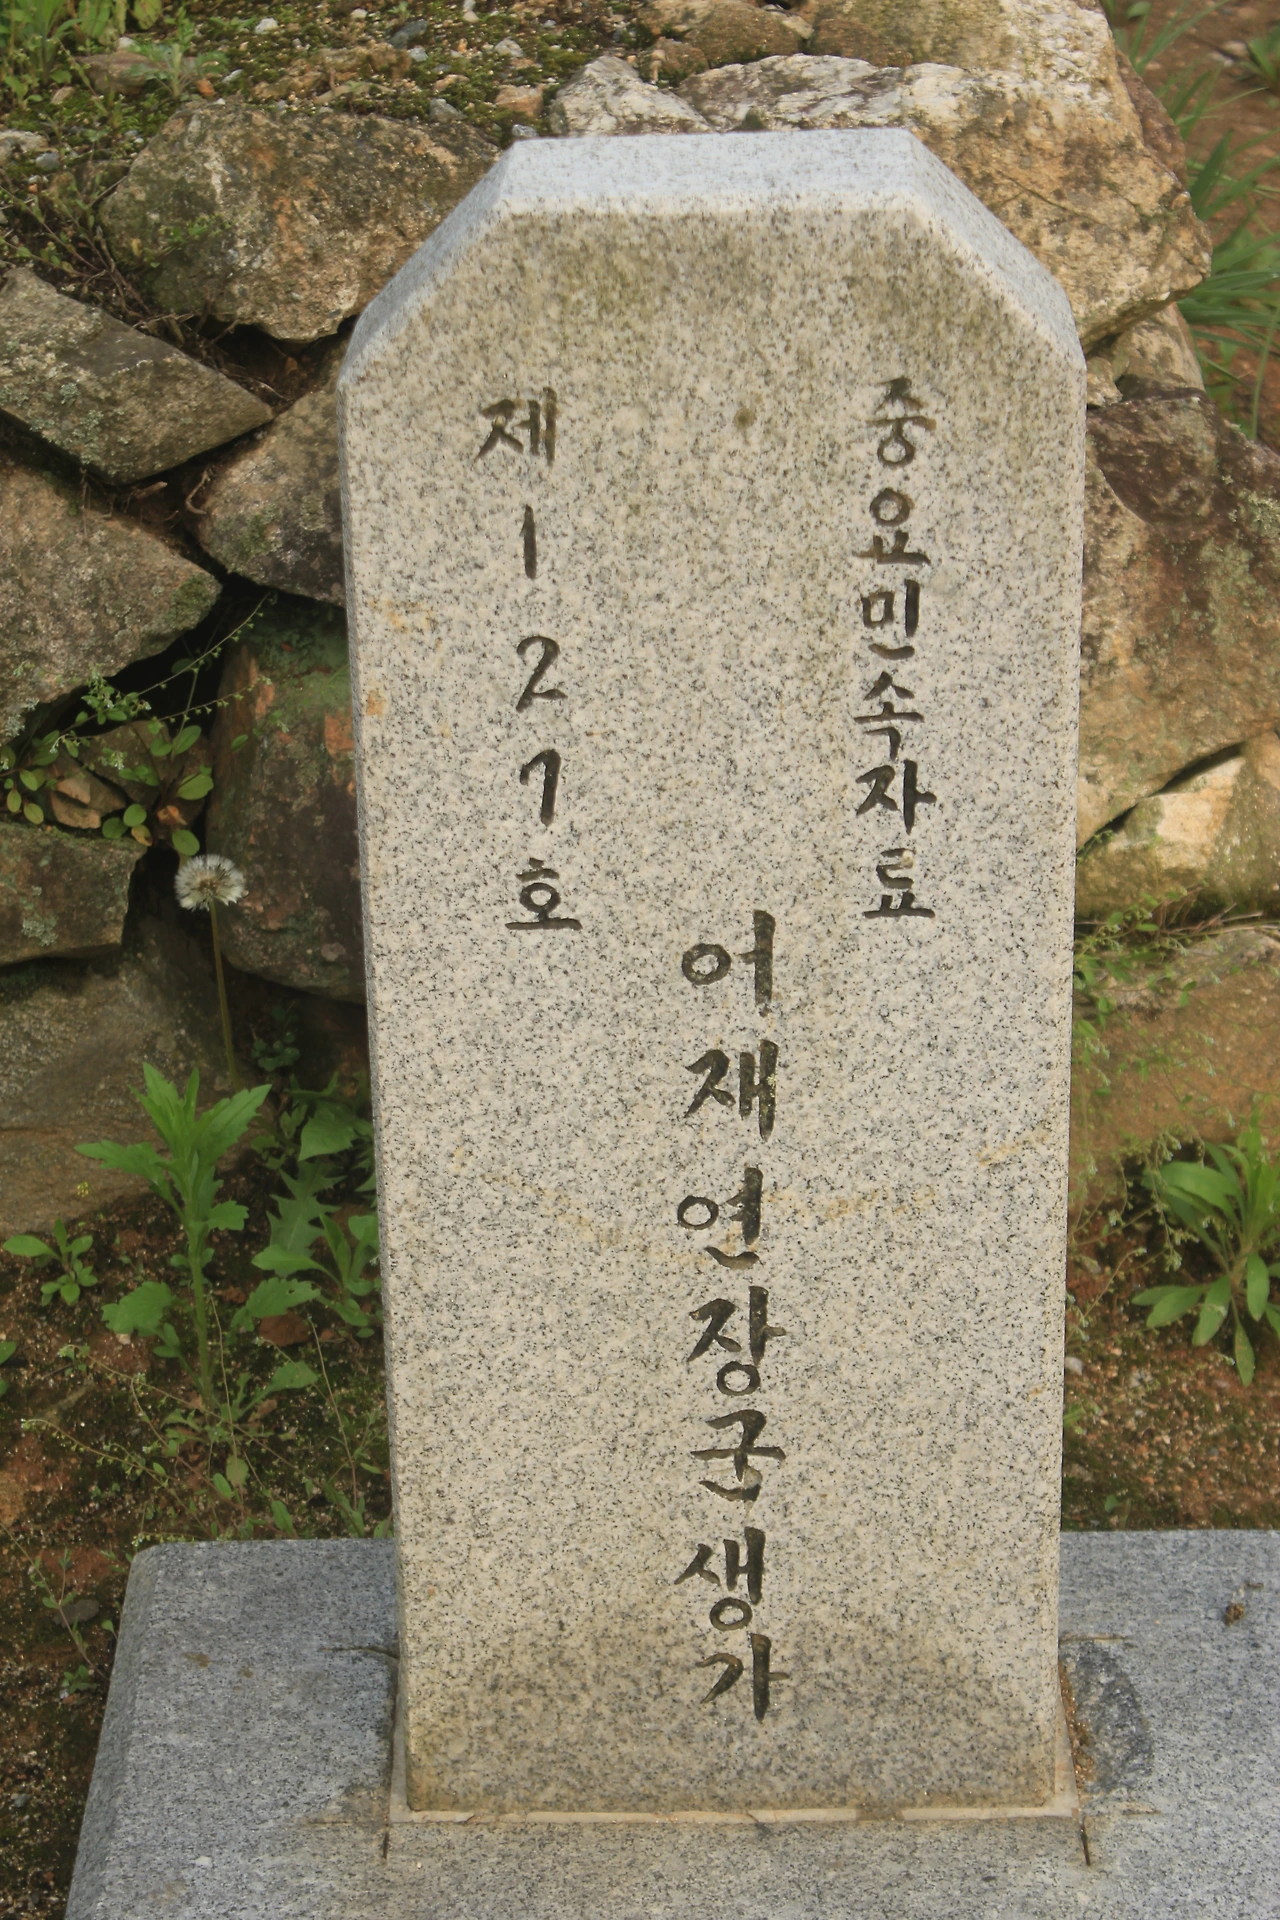 중요민속자료
제127호
어재연장군생가